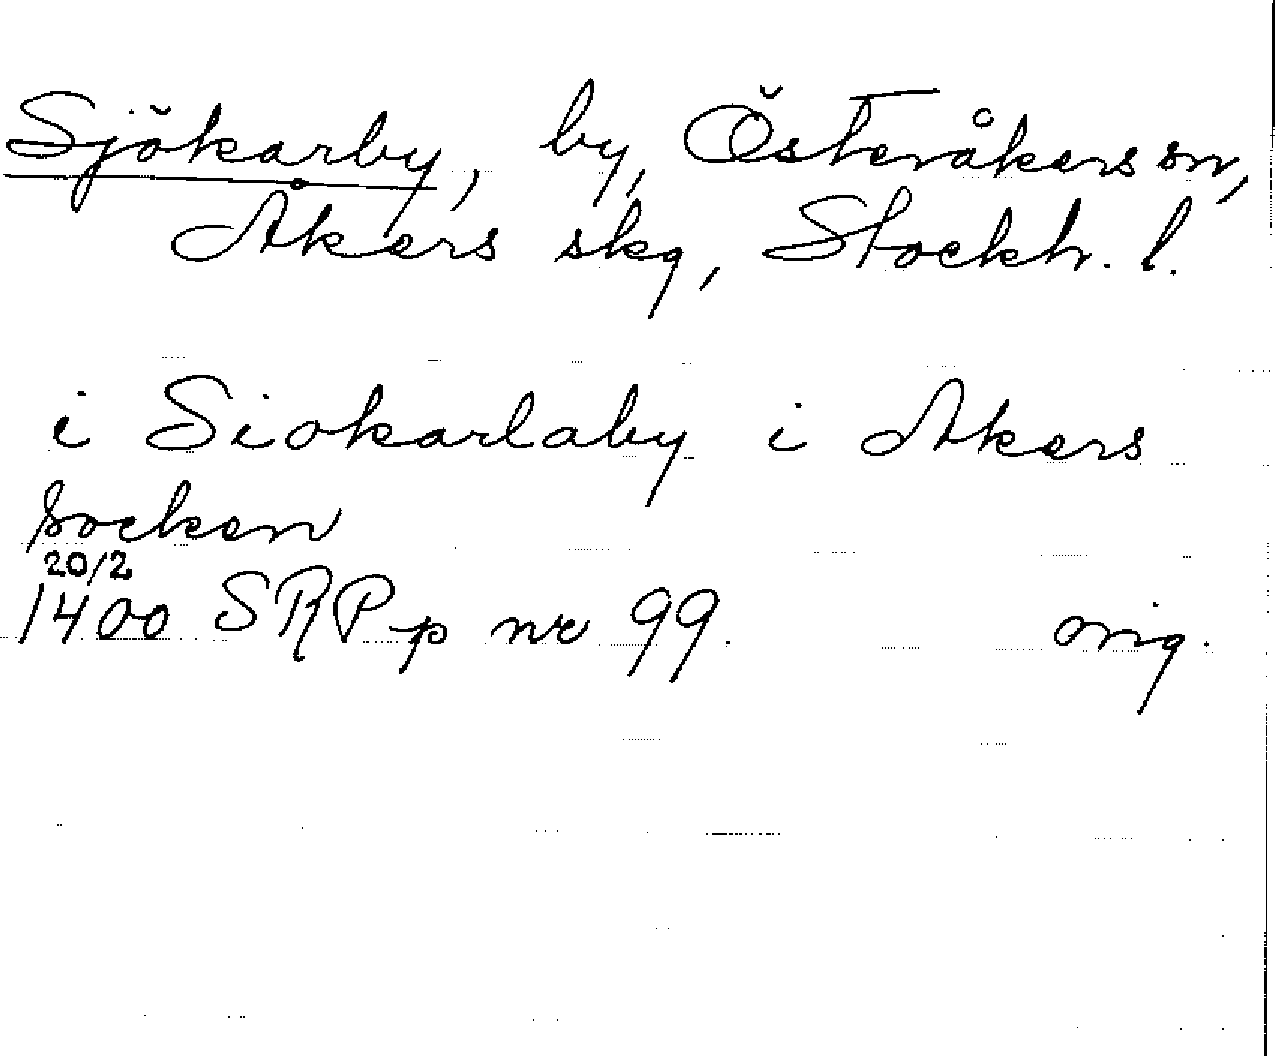 Sjökarby, by, Österåkers sn,
Åkers skg, Stockh. l.
i Siokarlaby i Akers
socken
20/2
1400 SRPp nr 99. orig.